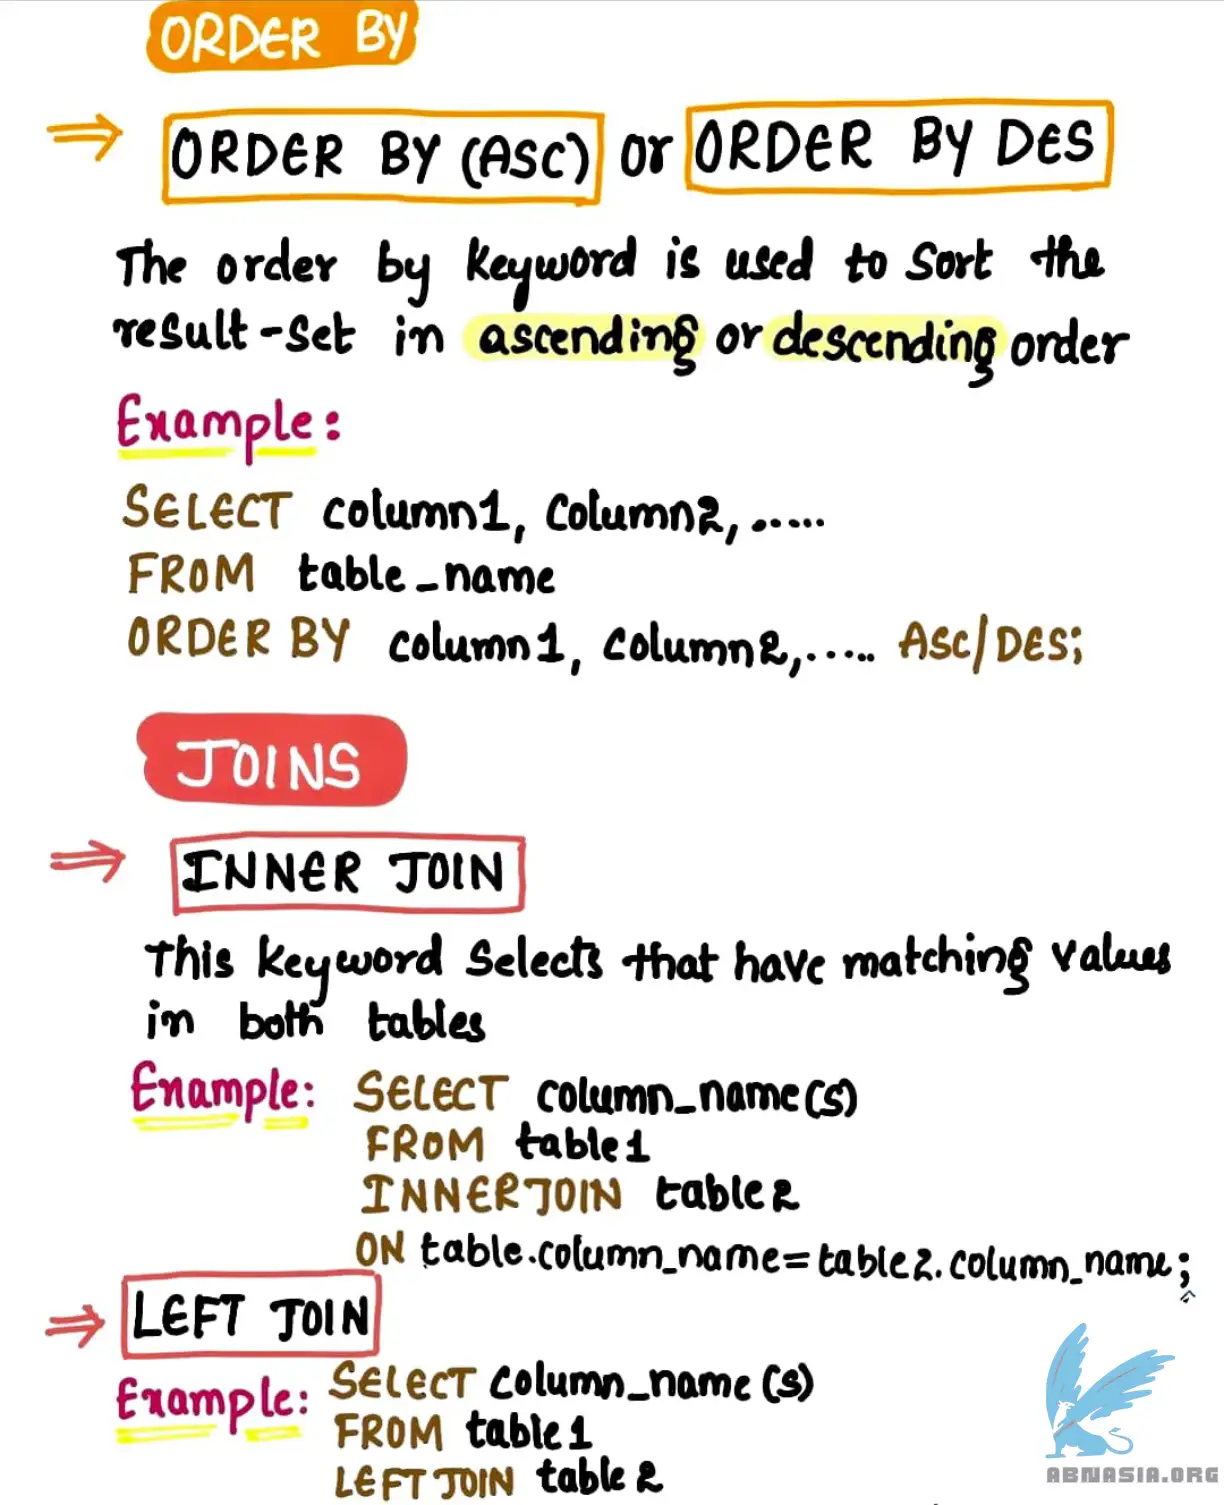 ORDER BY
⇒ ORDER BY (ASC) or ORDER BY DES
The order by keyword is used to sort the
result-set in ascending or descending order
Example:
SELECT column1, column2, .....
FROM table_name
ORDER BY column1, column2, ..... ASC/DES;
JOINS
⇒ INNER JOIN
This keyword selects that have matching values
in both tables
Example: SELECT column_name(s)
FROM table1
INNER JOIN table2
ON table.column_name=table2.column_name;
⇒ LEFT JOIN
Example: SELECT column_name(s)
FROM table1
LEFT JOIN table2
ABNASIA.ORG